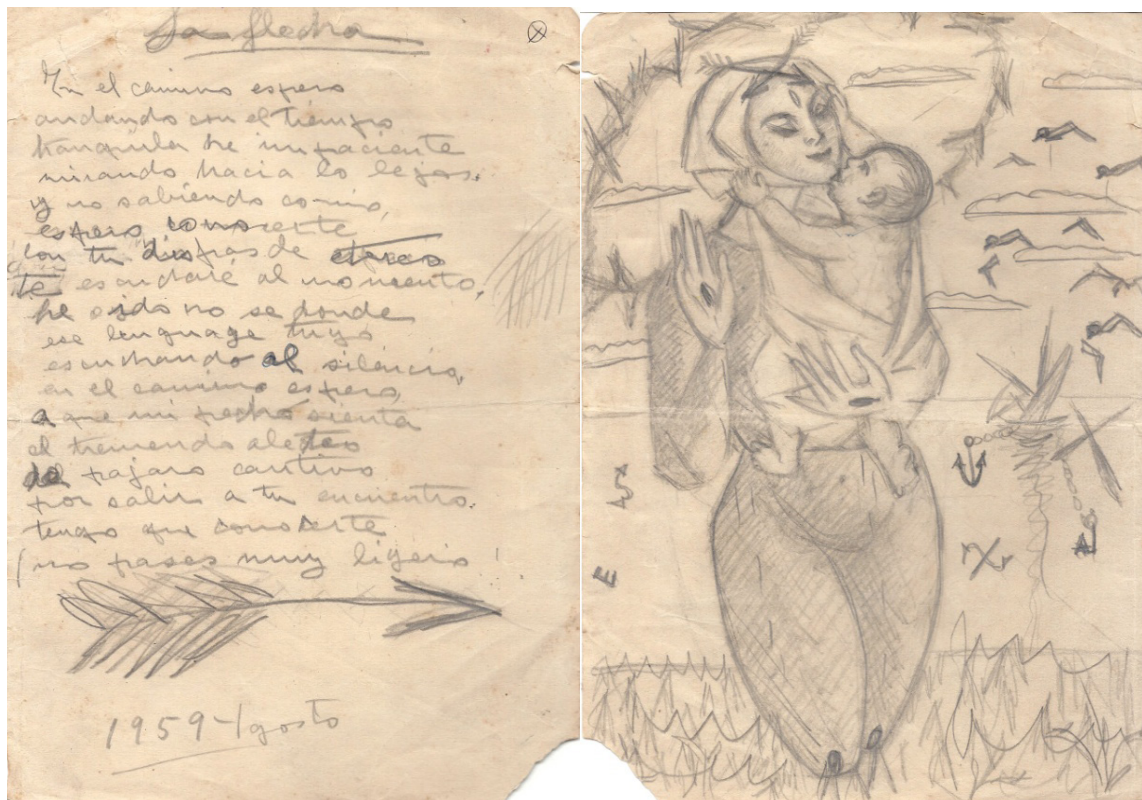 La flecha
En el camino espero
andando con el tiempo
tranquila he impaciente
mirando hacia lo lejos.
y no sabiendo como,
espero conocerte
con tu disfras de
te escuchare al momento,
he oido no se donde
ese lenguage tuyo
escuchando al silencio,
en el camino espero,
a que mi pecho sienta
el tremendo aleteo
del pajaro cautivo
por salir a tu encuentro.
tengo que conocerte
¡no pases muy ligero!
1959-Agosto
E